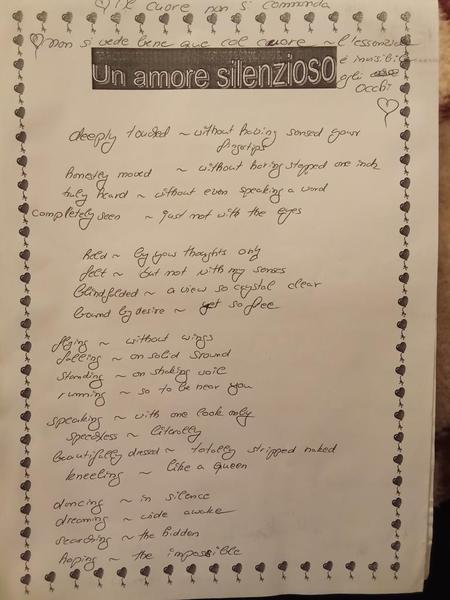 Il cuore non si commanda
non si vede bene que col cuore ~ l'essenziale
è invisibile
agli
occhi
Un amore silenzioso
deeply touched ~ without having sensed your
fingertips
honestly moved ~ without having stepped one inch
truly heard ~ without even speaking a word
completely seen ~ just not with the eyes
held ~ by your thoughts only
felt ~ but not with my senses
blindfolded ~ a view so crystal clear
bound by desire ~ yet so free
flying ~ without wings
falling ~ on solid ground
standing ~ on shaking soil
running ~ so to be near you
speaking ~ with one look only
speechless ~ literally
beautifully dressed ~ totally stripped naked
kneeling ~ like a Queen
dancing ~ in silence
dreaming ~ wide awake
searching ~ the hidden
hoping ~ the impossible